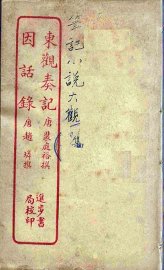 筆記小說大觀
東觀奏記 唐 裴庭裕撰
因話錄 唐 趙璘撰
進步書局校印